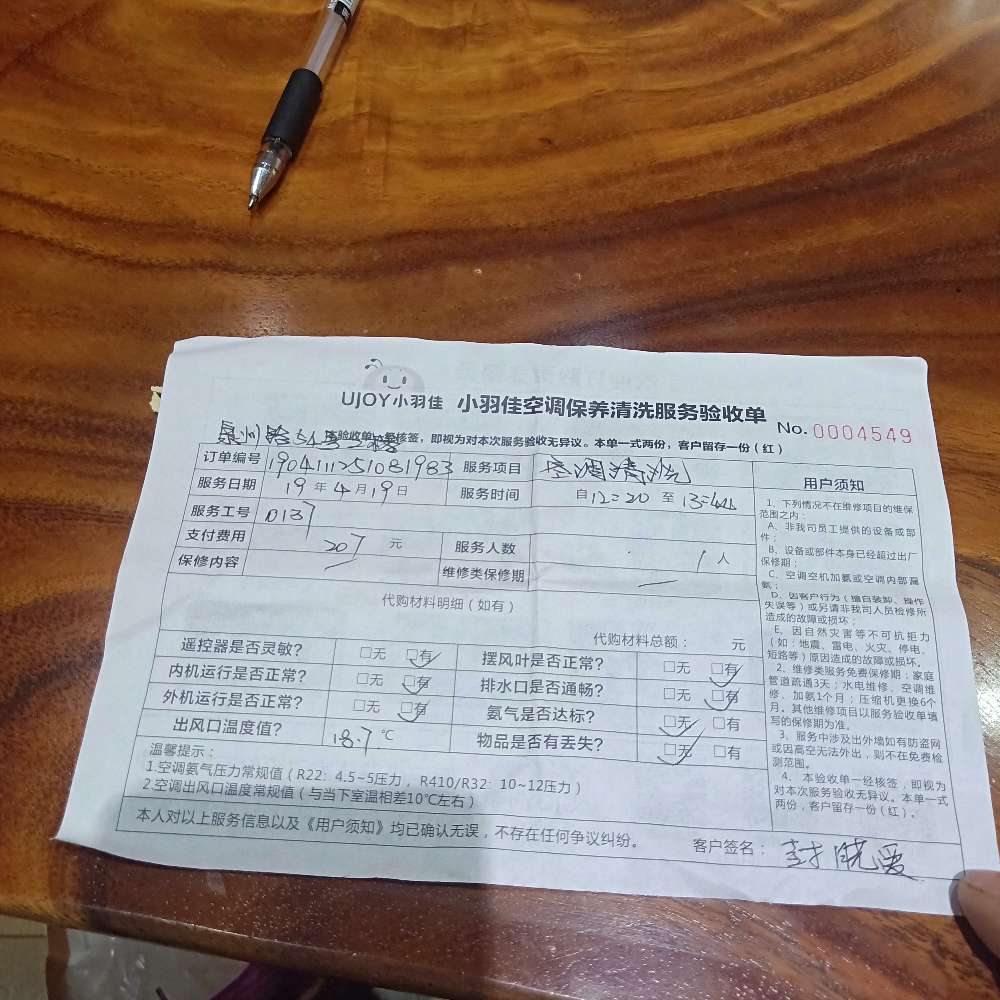 UJOY小羽佳 小羽佳空调保养清洗服务验收单
No. 0004549
泉州路51号二楼
验收单一经核签，即视为对本次服务验收无异议。本单一式两份，客户留存一份（红）
订单编号 1904111251081983 服务项目 空调清洗
服务日期 19 年 4 月 19 日 服务时间 自 12:20 至 13:44
服务工号 D137
支付费用 207 元 服务人数 1 人
保修内容 维修类保修期
代购材料明细（如有）
代购材料总额： 元
遥控器是否灵敏? □无 □有 摆风叶是否正常? □无 □有
内机运行是否正常? □无 □有 排水口是否通畅? □无 □有
外机运行是否正常? □无 □有 氨气是否达标? □无 □有
出风口温度值? 18.7 ℃ 物品是否有丢失? □无 □有
温馨提示：
1.空调氨气压力常规值（R22：4.5~5压力，R410/R32：10~12压力）
2.空调出风口温度常规值（与当下室温相差10℃左右）
本人对以上服务信息以及《用户须知》均已确认无误，不存在任何争议纠纷。
客户签名： 封晓爱
用户须知
1、下列情况不在维修项目的维保
范围之内：
A、非我司员工提供的设备或部
件；
B、设备或部件本身已经超过出厂
保修期；
C、空调空机加氨或空调内部漏
氨；
D、因客户行为（擅自装卸、操作
失误等）或另请非我司人员检修所
造成的故障或损坏；
E、因自然灾害等不可抗拒力
（如：地震、雷电、火灾、停电、
短路等）原因造成的故障或损坏。
2、维修类服务免费保修期：家庭
管道疏通3天；水电维修、空调维
修、加氨1个月；压缩机更换6个
月。其他维修项目以服务验收单填
写的保修期为准。
3、服务中涉及出外墙如有防盗网
或因高空无法外出，则不在免费检
测范围。
4、本验收单一经核签，即视为
对本次服务验收无异议。本单一式
两份，客户留存一份（红）。